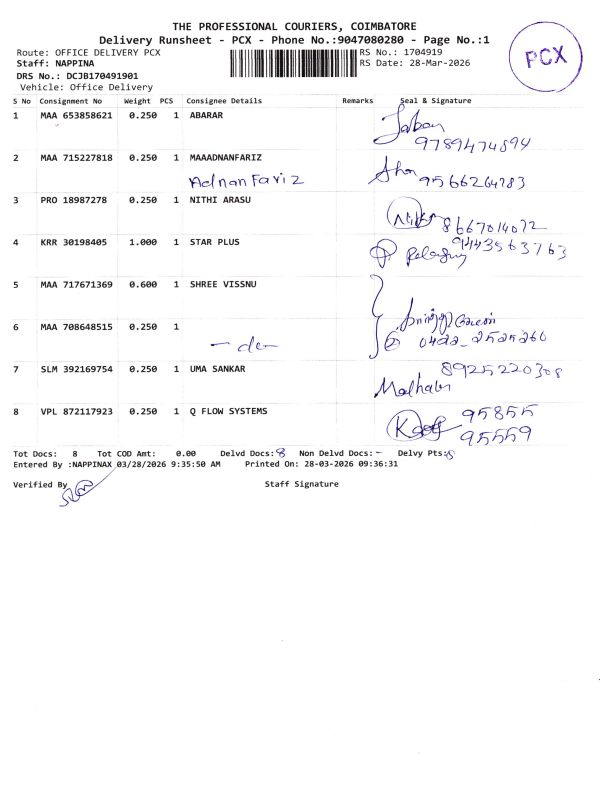 THE PROFESSIONAL COURIERS, COIMBATORE
Delivery Runsheet - PCX - Phone No.:9047080280 - Page No.:1
Route: OFFICE DELIVERY PCX RS No.: 1704919
Staff: NAPPINA RS Date: 28-Mar-2026
PCX
DRS No.: DCJB170491901
Vehicle: Office Delivery
S No Consignment No Weight PCS Consignee Details Remarks Seal & Signature
1 MAA 653858621 0.250 1 ABARAR
9789474894
2 MAA 715227818 0.250 1 MAAADNANFARIZ
Adnan Fariz 9566264783
3 PRO 18987278 0.250 1 NITHI ARASU
8667014072
4 KRR 30198405 1.000 1 STAR PLUS 9443563763
5 MAA 717671369 0.600 1 SHREE VISSNU
6 MAA 708648515 0.250 1
0422-2525260
7 SLM 392169754 0.250 1 UMA SANKAR 8925220308
8 VPL 872117923 0.250 1 Q FLOW SYSTEMS 95855
95559
Tot Docs: 8 Tot COD Amt: 0.00 Delvd Docs: 8 Non Delvd Docs: - Delvy Pts:
Entered By :NAPPINAX 03/28/2026 9:35:50 AM Printed On: 28-03-2026 09:36:31
Verified By Staff Signature